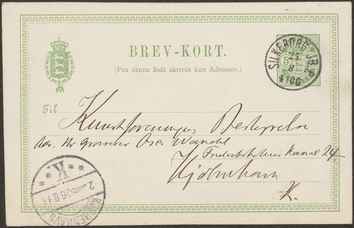 BREV-KORT.
(Paa denne Side skrives kun Adressen.)
SILKEBORG
Til
Kunstforeningens Bestyrelse
Adr. Hr Grosserer Oscar Wandel
Frederiksholms Kanal
Kjøbenhavn
K.
K